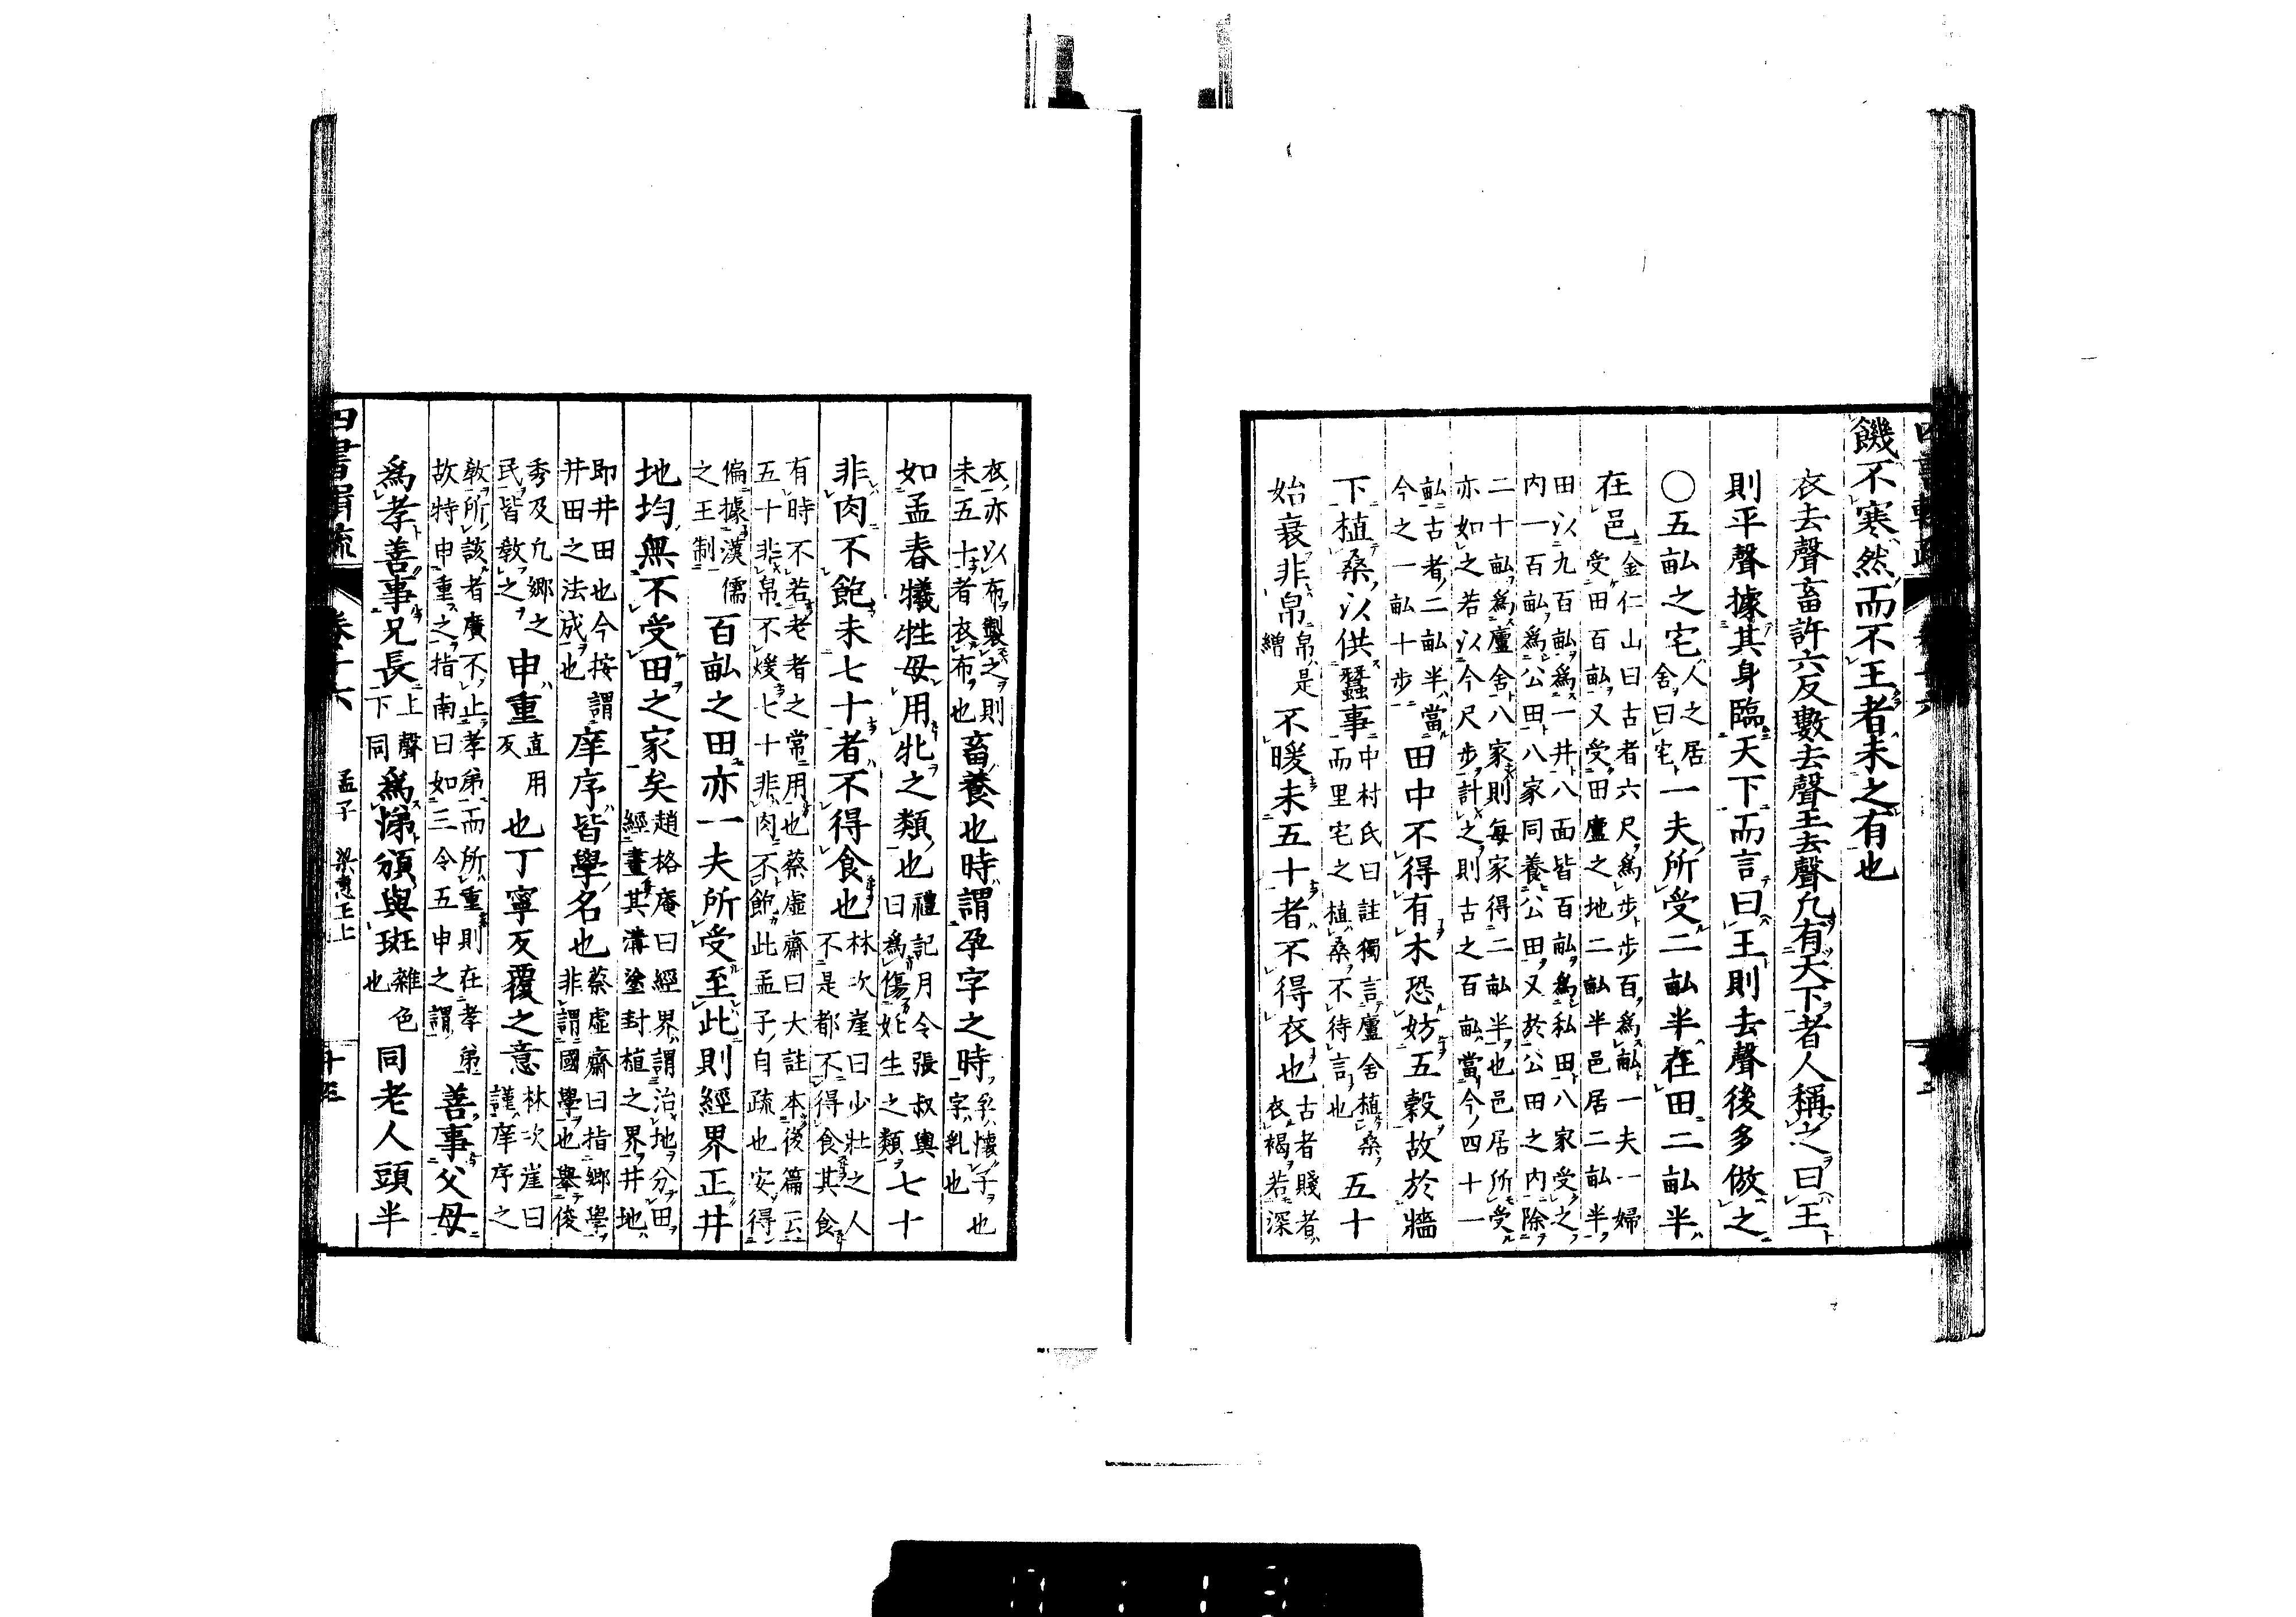 饑不寒然而不王者未之有也
衣去聲畜許六反數去聲王去聲凡有天下者人稱之曰王
則平聲據其身臨天下而言曰王則去聲後多倣之
〇五畝之宅人之居舍曰宅一夫所受二畝半在田二畝半
在邑金仁山曰古者六尺爲步步百爲畝一夫一婦
受田百畝又受田廬之地二畝半邑居二畝半
田以九百畝爲一井八面皆百畝爲私田八家受之
內一百畝爲公田八家同養公田又於公田之內除
二十畝爲廬舍八家則每家得二畝半也邑居所受
亦如之若以今尺步計之則古之百畝當今四十一
畝古者二畝半當今之一畝十步田中不得有木恐妨五穀故於牆
下植桑以供蠶事中村氏曰註獨言廬舍植桑而里宅之植桑不待言也五十
始衰非帛帛是繒不暖未五十者不得衣也古者賤者衣褐若深
衣亦以布製之則未五十者衣布也畜養也時謂孕字之時孕懷子也字乳也
如孟春犧牲毋用牝之類也禮記月令張叔輿曰爲傷妣生之類七十
非肉不飽未七十者不得食也林次崖曰少壯之人不是都不得食其食
有時不若老者之常用也蔡虛齋曰大註本後篇云
五十非帛不煖七十非肉不飽此孟子自疏也安得
偏據漢儒之王制百畝之田亦一夫所受至此則經界正井
地均無不受田之家矣趙格庵曰經界謂治地分田經畫其溝塗封植之界井地
即井田也今按謂井田之法成也庠序皆學名也蔡虛齋曰指鄉學非謂國學也舉俊
秀及凡鄉之民皆敎之申重直用反也丁寧反覆之意林次崖曰謹庠序之
敎所該者廣不止孝弟而所重則在孝弟
故特申重之指南曰如三令五申之謂善事父母
爲孝善事兄長上聲下同爲悌頒與斑雜色也同老人頭半
四書輯疏 卷十六 孟子 梁惠王上 十三